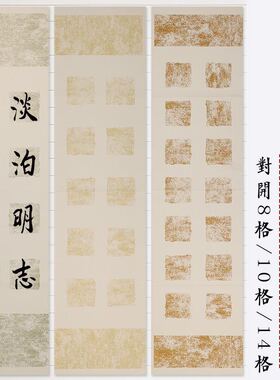 淡泊明志
對開8格/10格/14格